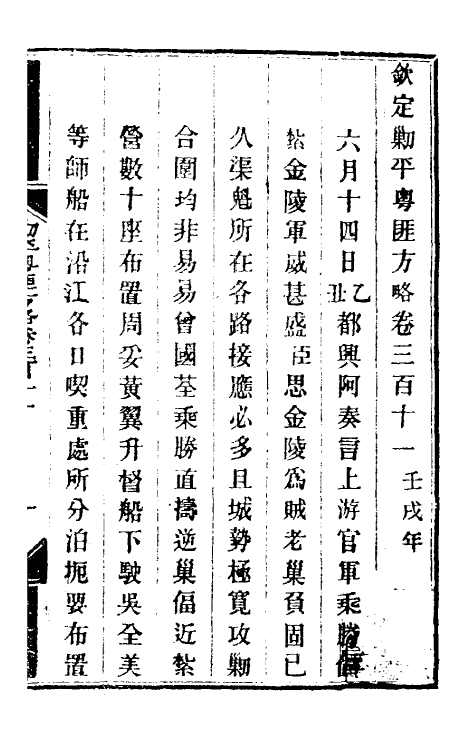 欽定剿平粵匪方略卷三百十一 壬戌年
六月十四日乙丑都興阿奏言上游官軍乘勝偪
紮金陵軍威甚盛臣思金陵爲賊老巢負固已
久渠魁所在各路接應必多且城勢極寬攻剿
合圍均非易易曾國荃乘勝直擣逆巢偪近紮
營數十座布置周妥黃翼升督船下駛吳全美
等師船在沿江各口喫重處所分泊扼要布置